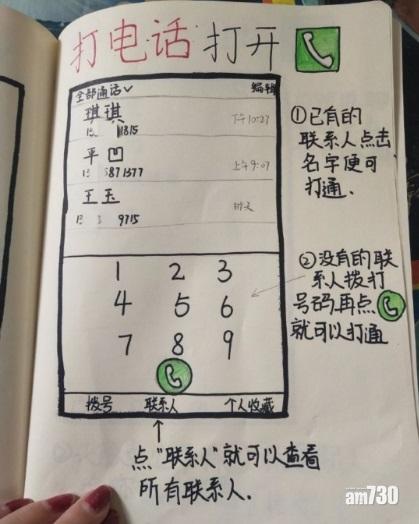 打电话 打开
全部通话 编辑
琪琪
下午10:27
平凹
871377
上午9:07
王玉
9715
昨天
1 2 3
4 5 6
7 8 9
拨号 联系人 个人收藏
①已有的
联系人点击
名字便可
打通.
②没有的联
系人拨打
号码再点
就可以打通
点"联系人"就可以查看
所有联系人.
am730